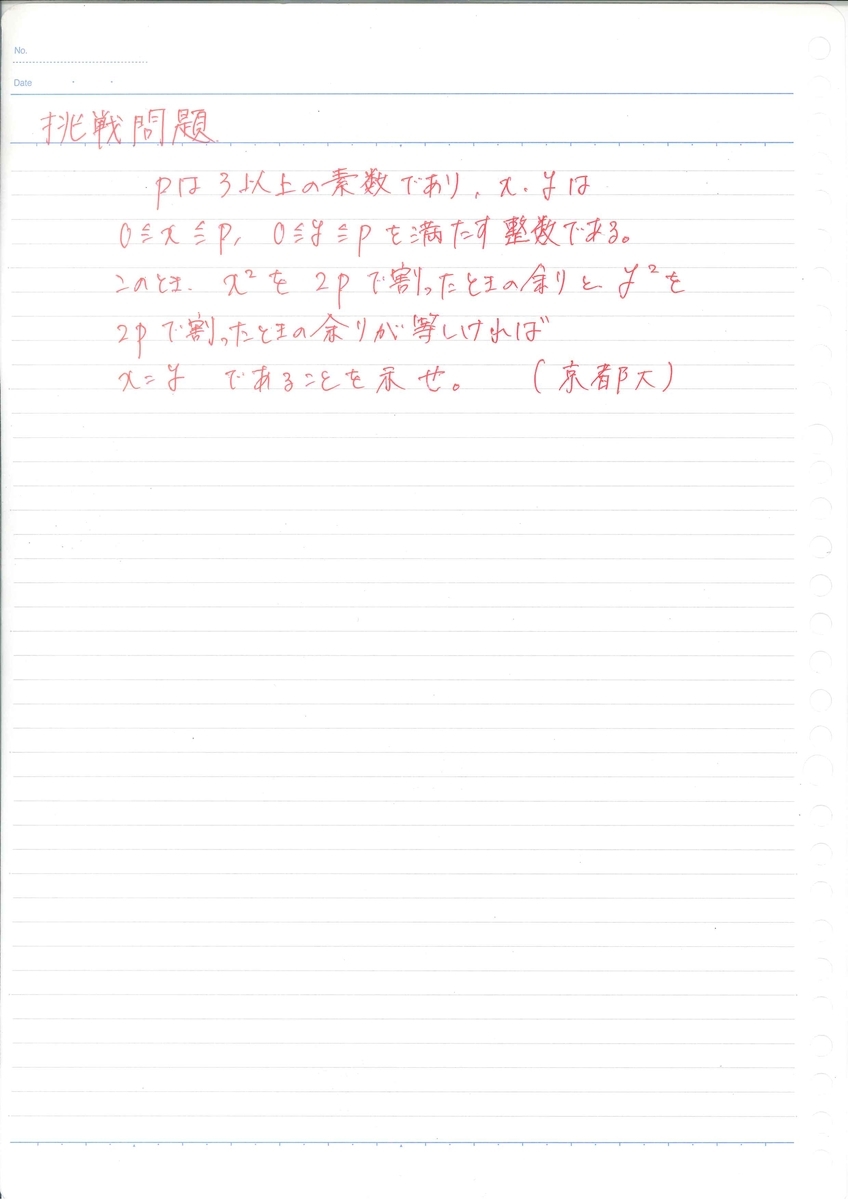 No.
Date
挑戦問題
pは3以上の素数であり、x、yは
0≦x≦p, 0≦y≦pを満たす整数である。
このとき、x²を2pで割ったときの余りと、y²を
2pで割ったときの余りが等しければ
x=y であることを示せ。 (京都大)